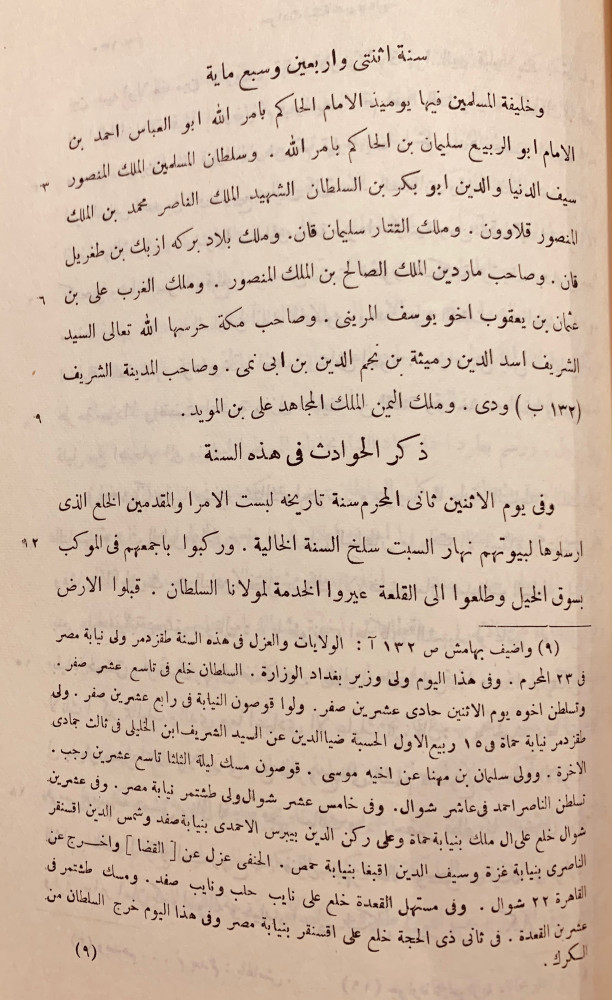 سنة اثنتى واربعين وسبع ماية
وخليفة المسلمين فيها يوميذ الامام الحاكم بامر الله ابو العباس احمد بن
الامام ابو الربيع سليمان بن الحاكم بامر الله . وسلطان المسلمين الملك المنصور
٣ سيف الدنيا والدين ابو بكر بن السلطان الشهيد الملك الناصر محمد بن الملك
المنصور قلاوون . وملك التتار سليمان قان. وملك بلاد بركه ازبك بن طغريل
قان . وصاحب ماردين الملك الصالح بن الملك المنصور . وملك الغرب على بن
٦ عثمان بن يعقوب اخو يوسف المرينى . وصاحب مكة حرسها الله تعالى السيد
الشريف اسد الدين رميثة بن نجم الدين بن ابى نمى . وصاحب المدينة الشريف
(١٣٢ ب) ودى . وملك اليمن الملك المجاهد على بن المويد .
٩
ذكر الحوادث فى هذه السنة
وفى يوم الاثنين ثانى المحرم سنة تاريخه لبست الامرا والمقدمين الخلع الذى
١٢ ارسلوها لبيوتهم نهار السبت سلخ السنة الخالية . وركبوا باجمعهم فى الموكب
بسوق الخيل وطلعوا الى القلعة عيروا الخدمة لمولانا السلطان . قبلوا الارض
(٩) واضيف بهامش ص ١٣٢ آ : الولايات والعزل فى هذه السنة طقزدمر ولى نيابة مصر
فى ٢٣ المحرم . وفى هذا اليوم ولى وزير بغداد الوزارة . السلطان خلع فى تاسع عشر صفر .
وتسلطن اخوه يوم الاثنين حادى عشرين صفر . ولوا قوصون النيابة فى رابع عشرين صفر . ولى
طقزدمر نيابة حماة فى ١٥ ربيع الاول الحسبة ضيا الدين عن السيد الشريف ابن الخليلى فى ثالث جمادى
الاخرة . وولى سلمان بن مهنا عن اخيه موسى . قوصون مسك ليلة الثلثا تاسع عشرين رجب .
تسلطن الناصر احمد فى عاشر شوال . وفى خامس عشر شوال ولى طشتمر نيابة مصر . وفى عشرين
شوال خلع على ال ملك بنيابة حماة وعلى ركن الدين بيبرس الاحمدى بنيابة صفد وشمس الدين اقسنقر
الناصرى بنيابة غزة وسيف الدين اقبغا بنيابة حمص . الحنفى عزل عن [ القضا ] واخرج عن
القاهرة ٢٢ شوال . وفى مستهل القعدة خلع على نايب حلب ونايب صفد . ومسك طشتمر فى
عشرين القعدة . فى ثانى ذى الحجة خلع على اقسنقر بنيابة مصر وفى هذا اليوم خرج السلطان من
الكرك .
(٩)